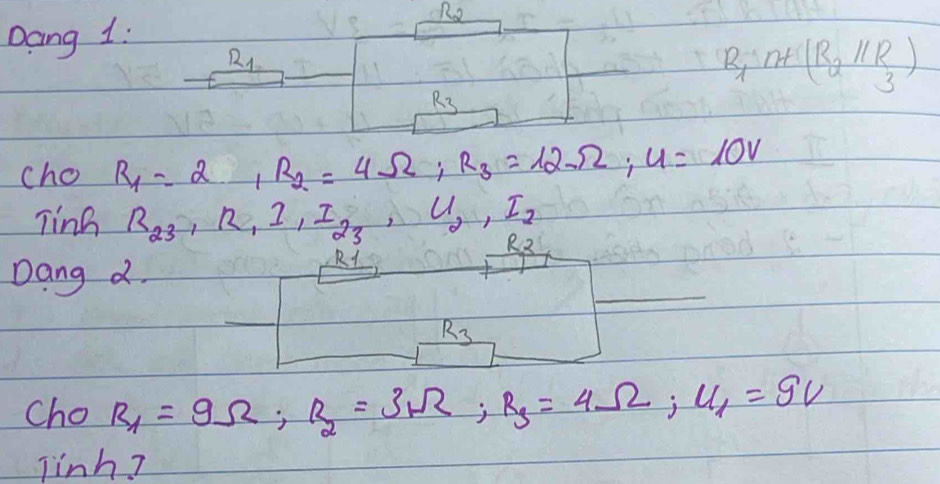 Dạng 1:
R2
R1
R3
R1 nt (R2 // R3)
Cho R1 = 2 , R2 = 4Ω ; R3 = 12Ω ; U = 10V
Tính R23, R, I, I23, U2, I2
Dạng 2.
R1
R2
R3
Cho R1 = 9Ω ; R2 = 3Ω ; R3 = 4Ω ; U1 = 9V
Tính ?